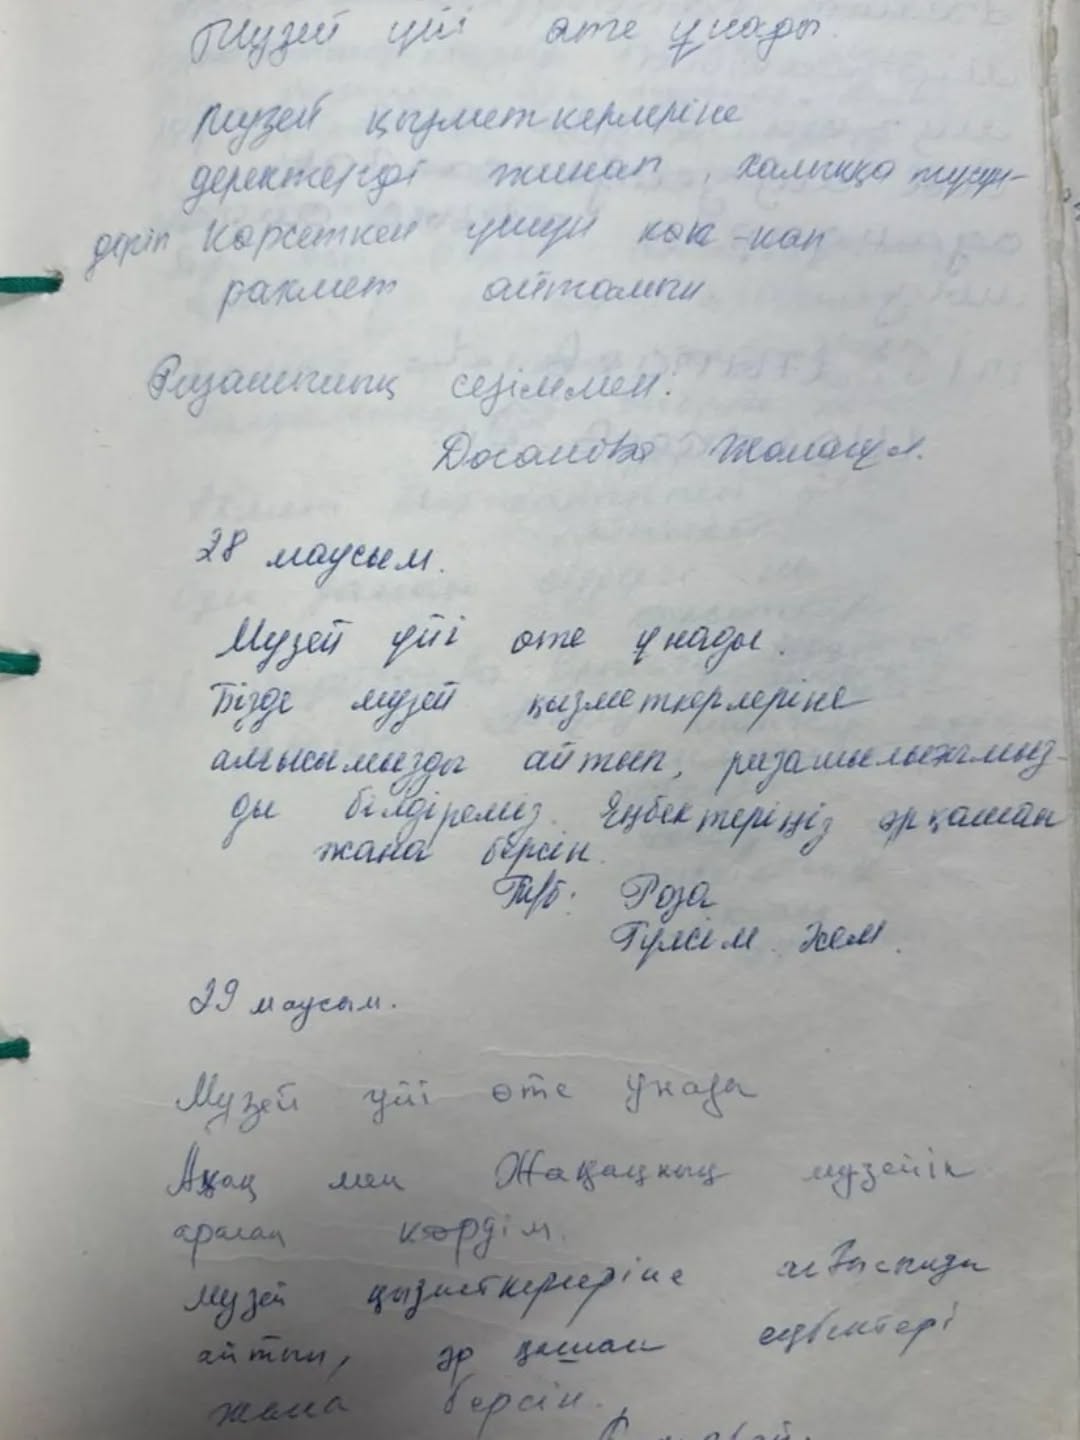 Музей үйі өте ұнады.
Музей қызметкерлеріне
деректерді жинап, халыққа түсін-
діріп көрсеткен үшін көп-көп
рахмет айтамын
Ризашылық сезіммен.
Досанова
28 маусым.
Музей үйі өте ұнады.
Бізде музей қызметкерлеріне
алғысымызды айтып, ризашылығымыз-
ды білдіреміз. Еңбектеріңіз әрқашан
жана берсін.
Роза
Гүлсім
29 маусым.
Музей үйі өте ұнады
мен музейін
аралап көрдім.
Музей қызметкерлеріне алғысымды
айтып, әр қашан еңбектері
жана берсін.